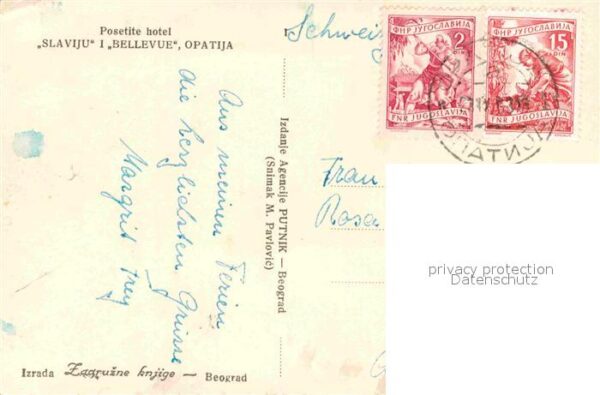 Posetite hotel
„SLAVIJU“ I „BELLEVUE“, OPATIJA
Aus meinen Ferien
die herzlichsten Grüsse
Margrit Frey
Izdanje Agencije PUTNIK — Beograd
(Snimak M. Pavlović)
Izrada Zadružne knjige — Beograd
Schweiz
ФНР ЈУГОСЛАВИЈА
2
FNR JUGOSLAVIJA
ФНР ЈУГОСЛАВИЈА
15
FNR JUGOSLAVIJA
ОПАТИЈА
Frau
Rosa
privacy protection
Datenschutz